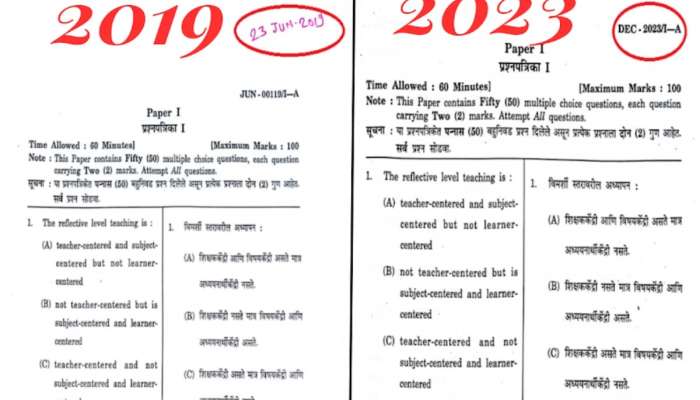 2019
23 JUN-2019
JUN-00119/I—A
Paper I
प्रश्नपत्रिका I
Time Allowed : 60 Minutes]
[Maximum Marks : 100
Note : This Paper contains Fifty (50) multiple choice questions, each question
carrying Two (2) marks. Attempt All questions.
सूचना : या प्रश्नपत्रिकेत पन्नास (50) बहुनिवड प्रश्न दिलेले असून प्रत्येक प्रश्नाला दोन (2) गुण आहेत.
सर्व प्रश्न सोडवा.
1. The reflective level teaching is :
(A) teacher-centered and subject-
centered but not learner-
centered
(B) not teacher-centered but is
subject-centered and learner-
centered
(C) teacher-centered and not
subject-centered and learner-
1. विमर्शी स्तरावरील अध्यापन :
(A) शिक्षककेंद्री आणि विषयकेंद्री असते मात्र
अध्ययनार्थीकेंद्री नसते.
(B) शिक्षककेंद्री नसते मात्र विषयकेंद्री आणि
अध्ययनार्थीकेंद्री असते.
(C) शिक्षककेंद्री असते मात्र विषयकेंद्री आणि
अध्ययनार्थीकेंद्री नसते.
2023
DEC - 2023/I—A
Paper I
प्रश्नपत्रिका I
Time Allowed : 60 Minutes]
[Maximum Marks : 100
Note : This Paper contains Fifty (50) multiple choice questions, each question
carrying Two (2) marks. Attempt All questions.
सूचना : या प्रश्नपत्रिकेत पन्नास (50) बहुनिवड प्रश्न दिलेले असून प्रत्येक प्रश्नाला दोन (2) गुण आहेत.
सर्व प्रश्न सोडवा.
1. The reflective level teaching is :
(A) teacher-centered and subject-
centered but not learner-
centered
(B) not teacher-centered but is
subject-centered and learner-
centered
(C) teacher-centered and not
subject-centered and learner-
centered
1. विमर्शी स्तरावरील अध्यापन :
(A) शिक्षककेंद्री आणि विषयकेंद्री असते मात्र
अध्ययनार्थीकेंद्री नसते.
(B) शिक्षककेंद्री नसते मात्र विषयकेंद्री आणि
अध्ययनार्थीकेंद्री असते.
(C) शिक्षककेंद्री असते मात्र विषयकेंद्री आणि
अध्ययनार्थीकेंद्री नसते.